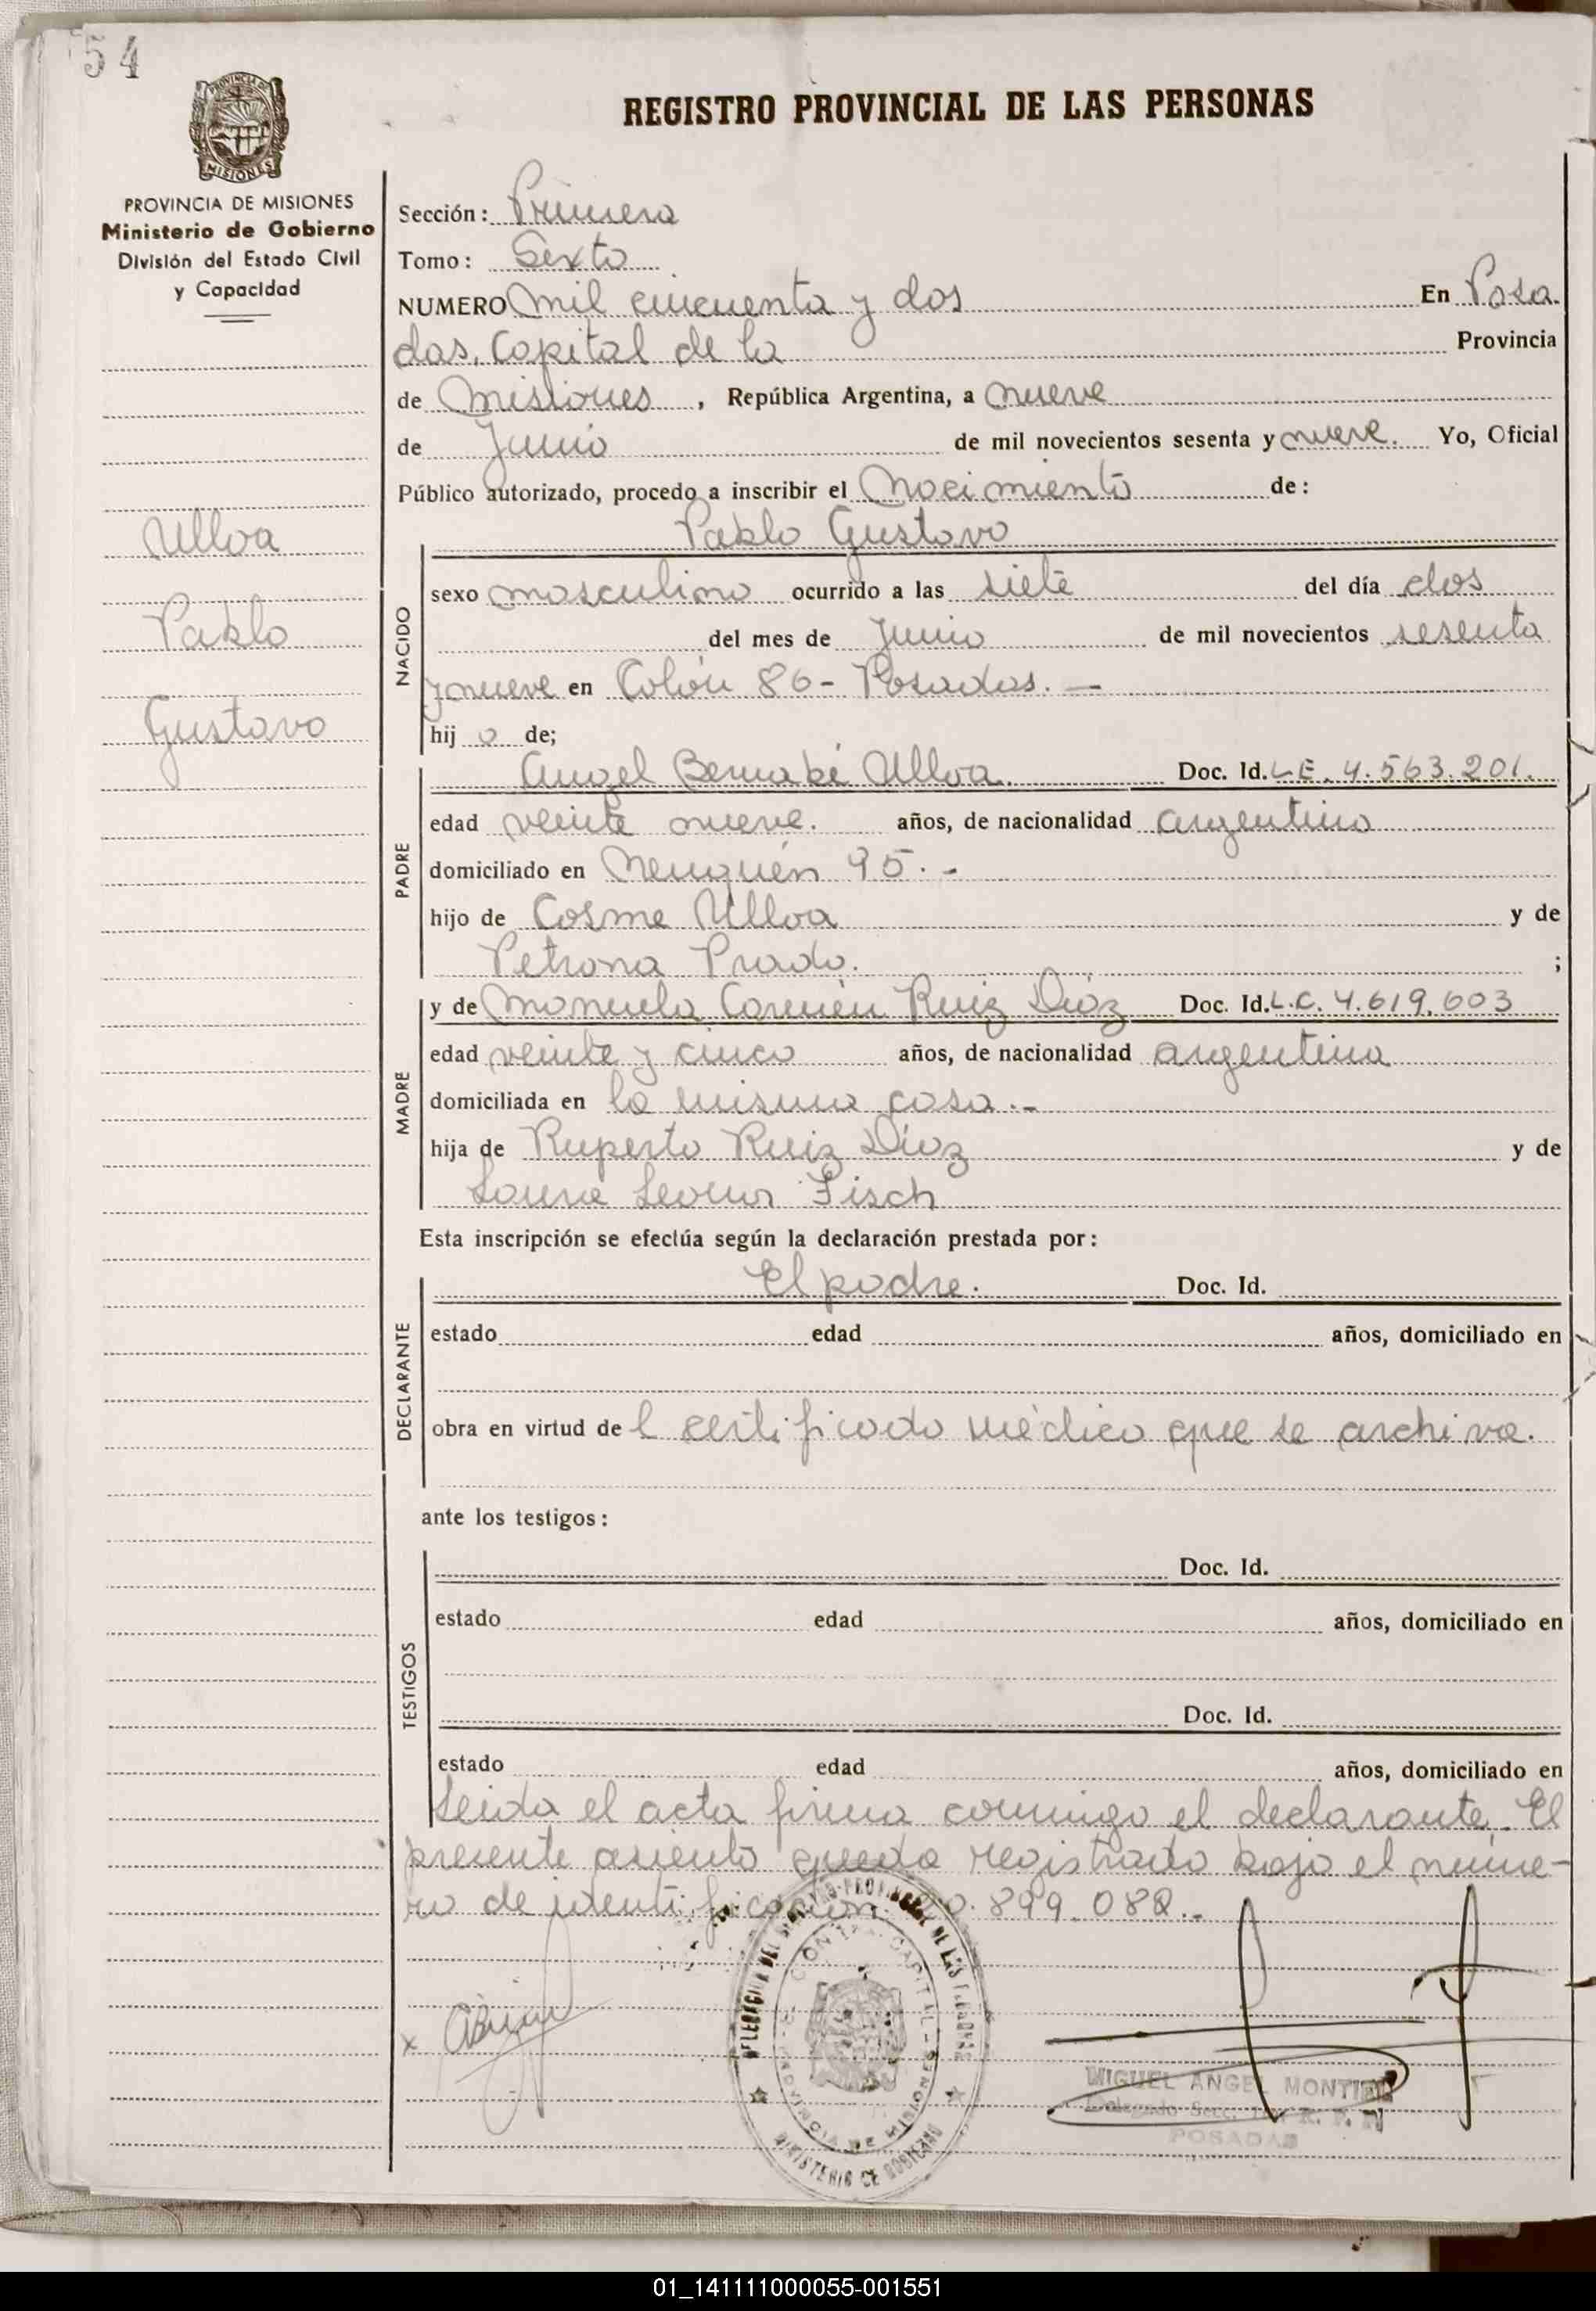 54
REGISTRO PROVINCIAL DE LAS PERSONAS
PROVINCIA DE MISIONES
MISIONES
PROVINCIA DE MISIONES
Ministerio de Gobierno
División del Estado Civil
y Capacidad
Ulloa
Pablo
Gustavo
Sección: Primera
Tomo: Sexto
NUMERO mil cincuenta y dos En Posa.
das, Capital de la Provincia
de Misiones, República Argentina, a nueve
de Junio de mil novecientos sesenta y nueve. Yo, Oficial
Público autorizado, procedo a inscribir el Nacimiento de:
Pablo Gustavo
NACIDO
sexo masculino ocurrido a las siete del día dos
del mes de Junio de mil novecientos sesenta
y nueve en Colón 86- Posadas. —
hij o de;
PADRE
Angel Bernabé Ulloa. Doc. Id. L.E. 4.563.201.
edad veinte nueve. años, de nacionalidad argentino
domiciliado en Neuquén 95.-
hijo de Cosme Ulloa y de
Petrona Prado. ;
MADRE
y de Manuela Carmen Ruiz Díaz Doc. Id. L.C. 4.619.603
edad veinte y cinco años, de nacionalidad argentina
domiciliada en la misma casa.-
hija de Ruperto Ruiz Díaz y de
Laura Leonor Fisch
Esta inscripción se efectúa según la declaración prestada por:
DECLARANTE
El padre. Doc. Id.
estado edad años, domiciliado en
obra en virtud de l certificado médico que se archiva.
ante los testigos:
TESTIGOS
Doc. Id.
estado edad años, domiciliado en
Doc. Id.
estado edad años, domiciliado en
Leida el acta firma conmigo el declarante. El
presente asiento queda registrado bajo el núme-
ro de identificación 20.899.082.-
x
PROVINCIA DE MISIONES
MINISTERIO DE GOBIERNO
MIGUEL ANGEL MONTIEL
Delegado Secc.
POSADAS
01_141111000055-001551